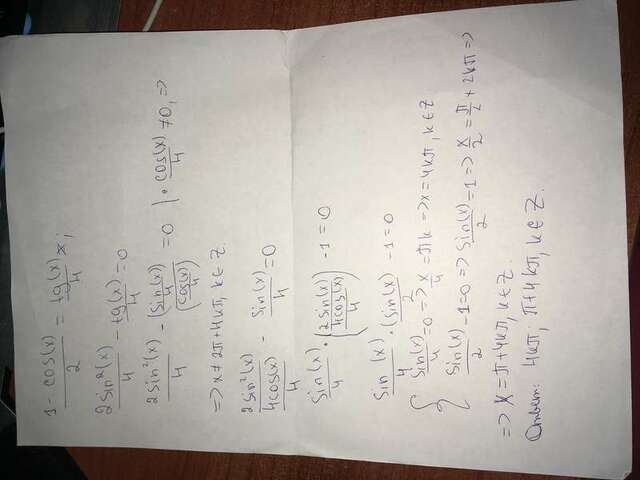 1 - cos(x)/2 = tg(x)/4 x;
2sin²(x)/4 - tg(x)/4 = 0
2sin²(x)/4 - (sin(x)/4 / cos(x)/4) = 0 | · cos(x)/4 ≠ 0, =>
=> x ≠ 2π + 4kπ, k ∈ Z.
2sin²(x)/4cos(x)/4 - sin(x)/4 = 0
sin(x)/4 · (2sin(x)/4cos(x)/4) - 1 = 0
sin(x)/4 · (sin(x)/2 - 1 = 0
{ sin(x)/4 = 0 => x/4 = πk => x = 4kπ, k ∈ Z
sin(x)/2 - 1 = 0 => sin(x)/2 = 1 => x/2 = π/2 + 2kπ =>
=> x = π + 4kπ, k ∈ Z.
Ответ: 4kπ; π + 4kπ, k ∈ Z.